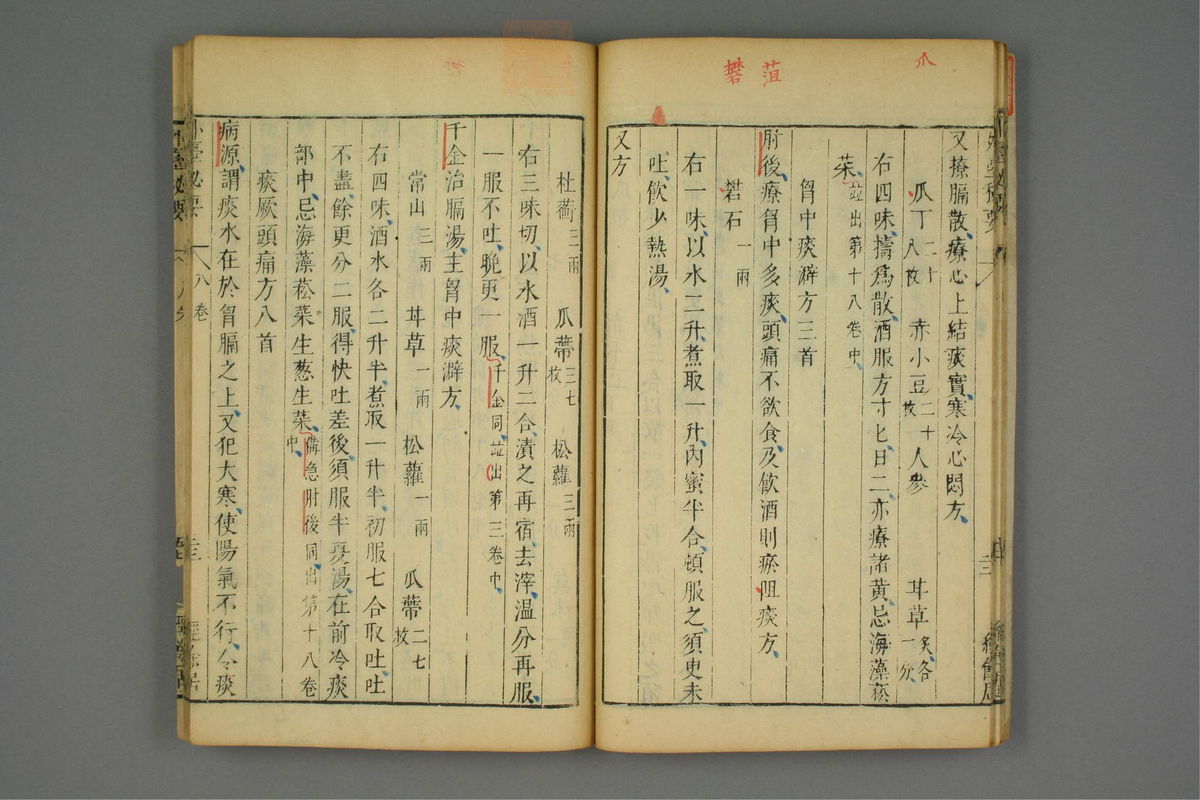 爪
菹
礬
又療膈散療心上結痰實寒冷心悶方
瓜丁二十八枚 赤小豆二十枚 人參 甘草炙各一分
右四味擣為散酒服方寸匕日二亦療諸黄忌海藻菘
菜並出第十八卷中
胷中痰澼方三首
肘後療胷中多痰頭痛不欲食及飲酒則瘀阻痰方
礬石一兩
右一味以水二升煮取一升內蜜半合頓服之須臾未
吐飲少熱湯
又方
杜蘅三兩 瓜蔕三七枚 松蘿三兩
右三味切以水酒一升二合漬之再宿去滓温分再服
一服不吐晚更一服千金同並出第三卷中
千金治膈湯主胷中痰澼方
常山三兩 甘草一兩 松蘿一兩 瓜蔕二七枚
右四味酒水各二升半煮取一升半初服七合取吐吐
不盡餘更分二服得快吐差後須服半夏湯在前冷痰
部中忌海藻菘菜生葱生菜備急肘後同出第十八卷中
痰厥頭痛方八首
病源謂痰水在於胷膈之上又犯大寒使陽氣不行令痰
外臺秘要
八卷
經餘居